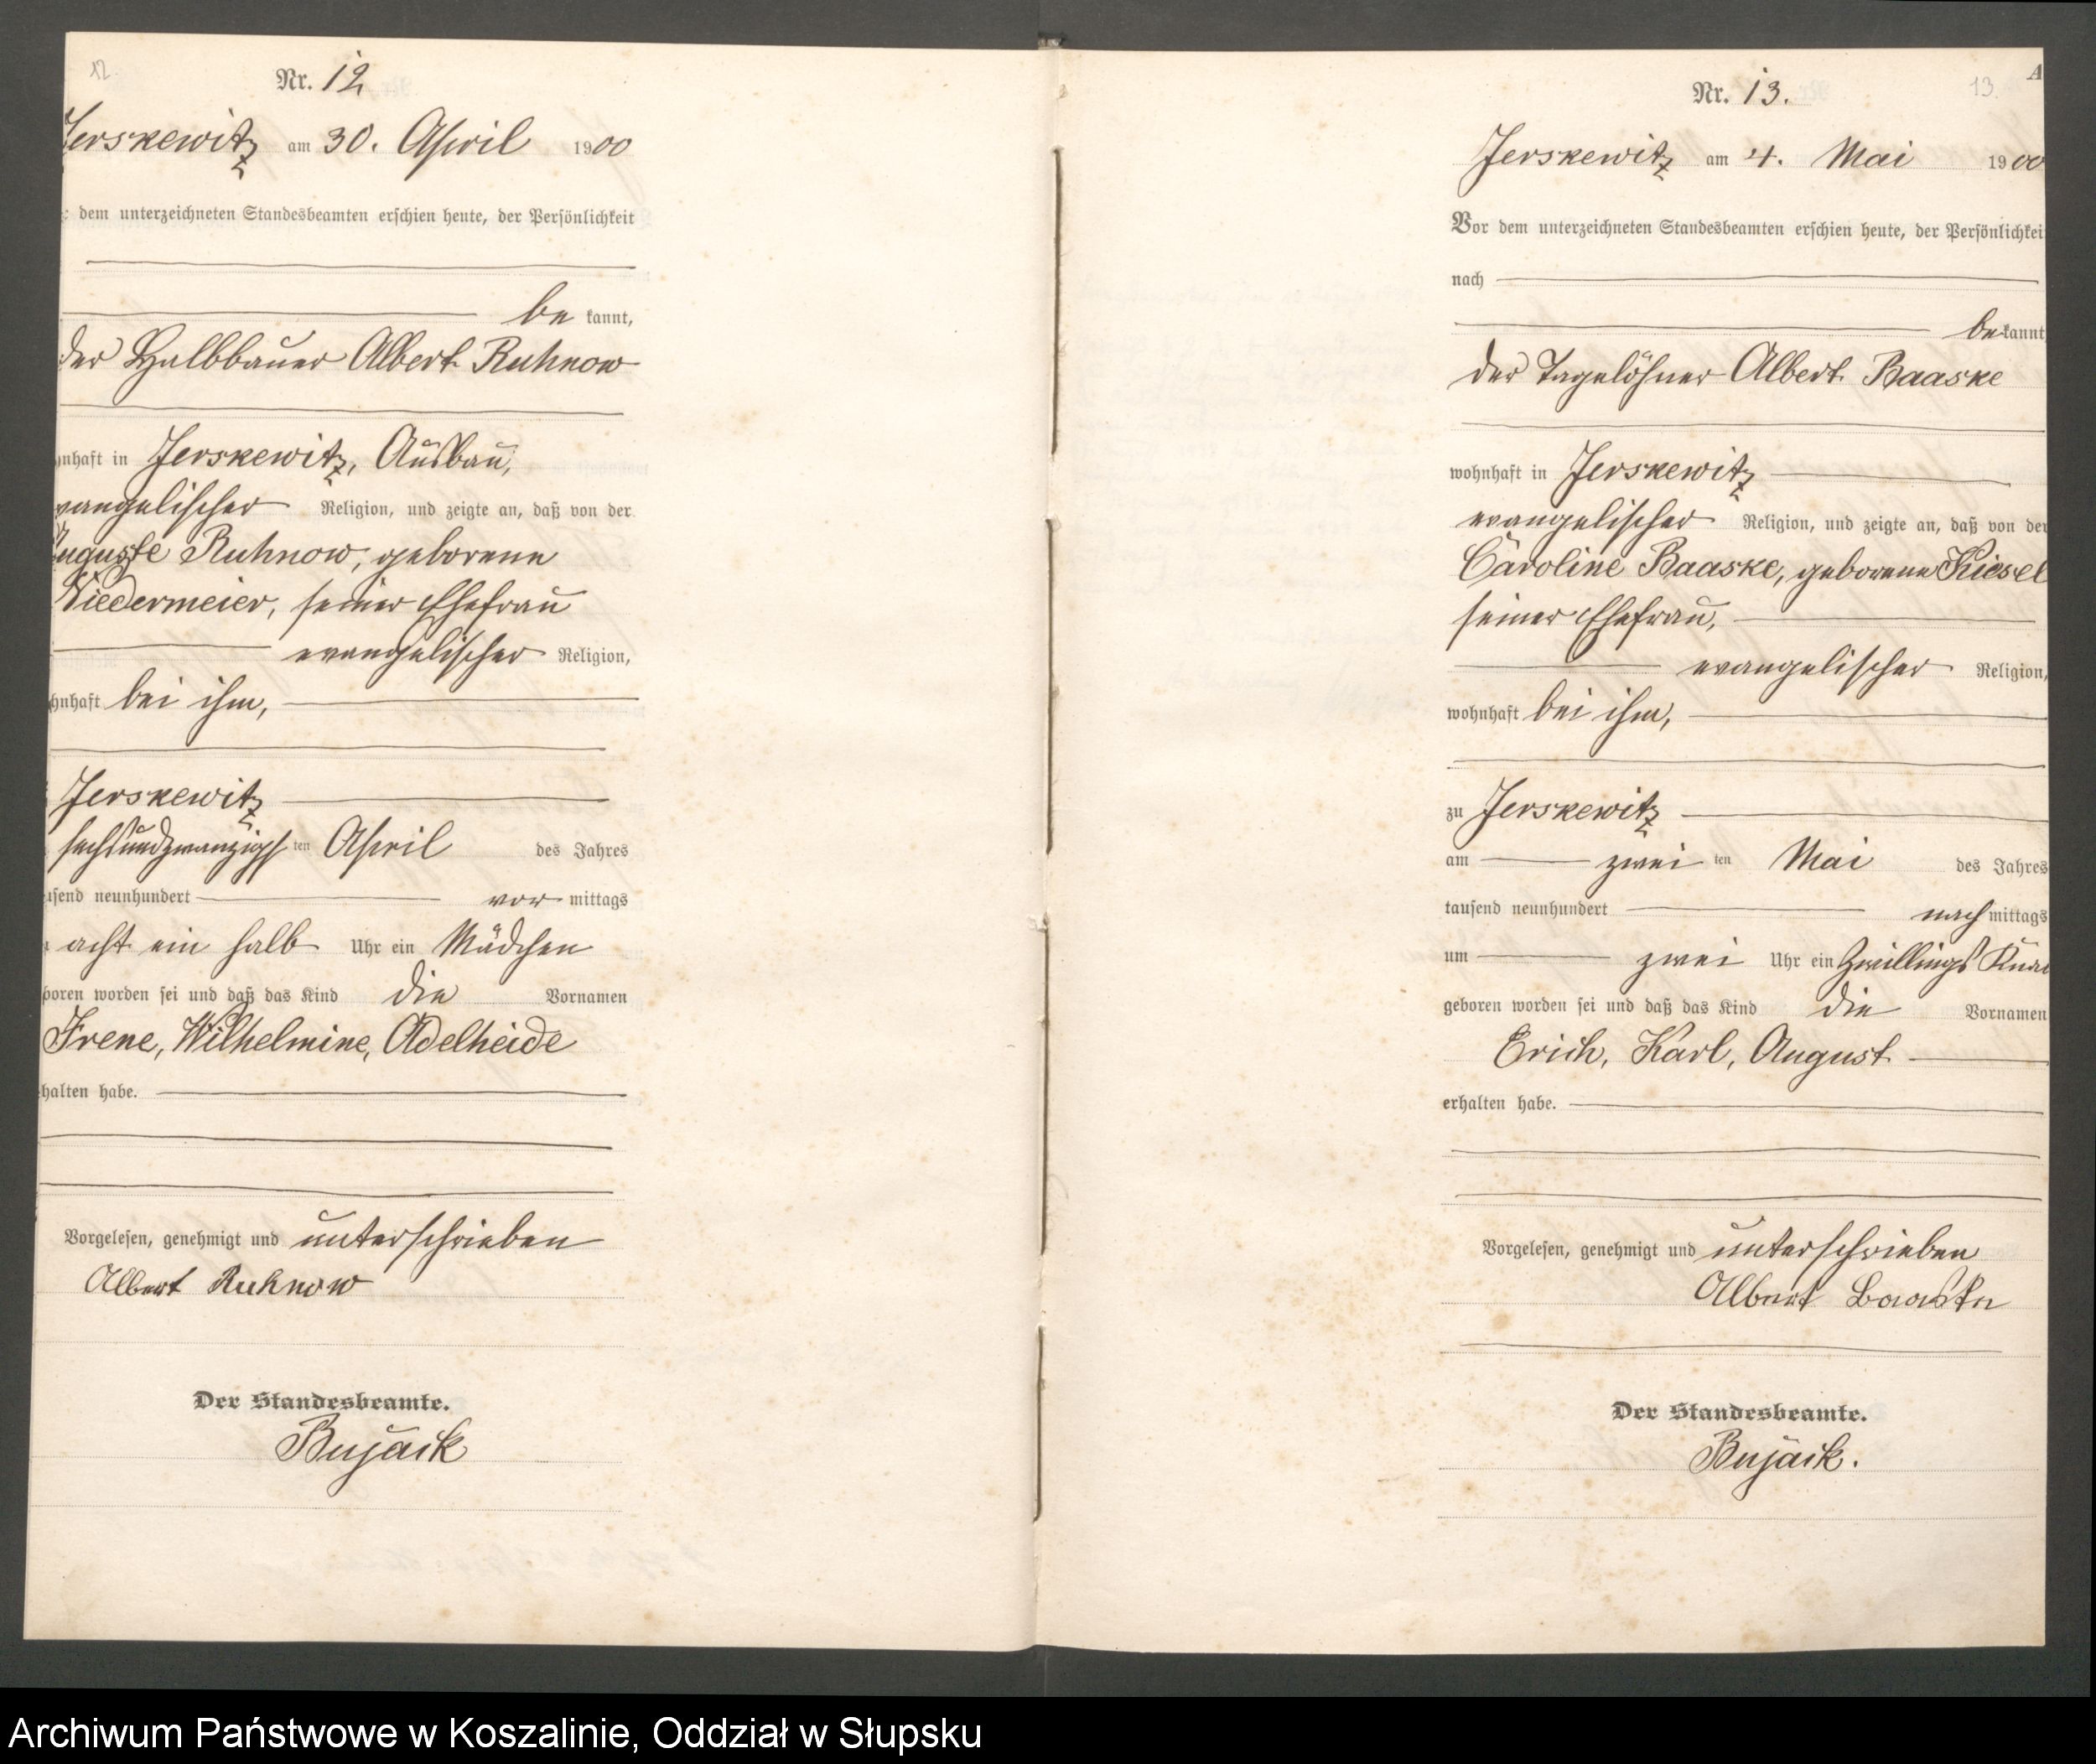 12.
Nr. 12
Jerskewitz am 30. April 1900
dem unterzeichneten Standesbeamten erschien heute, der Persönlichkeit
be kannt,
der Halbbauer Albert Ruhnow
nhaft in Jerskewitz, Ausbau,
vangelischer Religion, und zeigte an, daß von der
Auguste Ruhnow, geborene
Niedermeier, seiner Ehefrau
evangelischer Religion,
hnhaft bei ihm,
Jerskewitz
sechsundzwanzigsten April des Jahres
usend neunhundert vor mittags
acht ein halb Uhr ein Mädchen
boren worden sei und daß das Kind die Vornamen
Irene, Wilhelmine, Adelheide
halten habe.
Vorgelesen, genehmigt und unterschrieben
Albert Ruhnow
Der Standesbeamte.
Bujack
A
13.
Nr. 13.
Jerskewitz am 4. Mai 1900
Vor dem unterzeichneten Standesbeamten erschien heute, der Persönlichkei
nach
be kannt
der Tagelöhner Albert Baaske
wohnhaft in Jerskewitz
evangelischer Religion, und zeigte an, daß von der
Caroline Baaske, geborene Kiesel
seiner Ehefrau,
evangelischer Religion,
wohnhaft bei ihm,
zu Jerskewitz
am zwei ten Mai des Jahres
tausend neunhundert nach mittags
um zwei Uhr ein Zwillings Kna
geboren worden sei und daß das Kind die Vornamen
Erich, Karl, August
erhalten habe.
Vorgelesen, genehmigt und unterschrieben
Albert Baaske
Der Standesbeamte.
Bujack.
Archiwum Państwowe w Koszalinie, Oddział w Słupsku